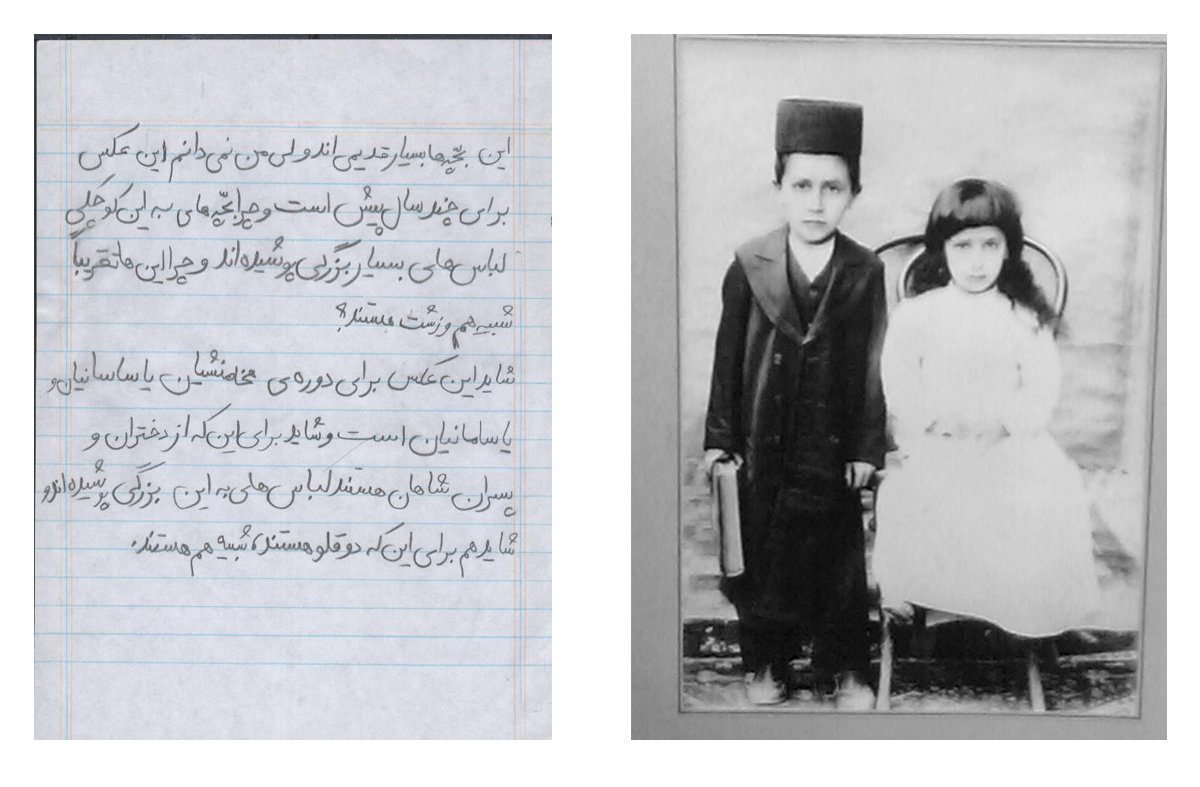 این بچّه‌ها بسیار قدیمی اند ولی من نمی دانم این عکس
برای چند سال پیش است و چرا بچّه‌های به این کوچکی
لباس‌های بسیار بزرگی پوشیده‌اند و چرا این ها تقریباً
شبیه هم و زشت هستند؟
شاید این عکس برای دوره‌ی هخامنشیان یا ساسانیان و
یا سامانیان است و شاید برای این که از دختران و
پسران شاهان هستند لباس هایی به این بزرگی پوشیده‌اند و
شاید هم برای این که دوقلو هستند، شبیه هم هستند.